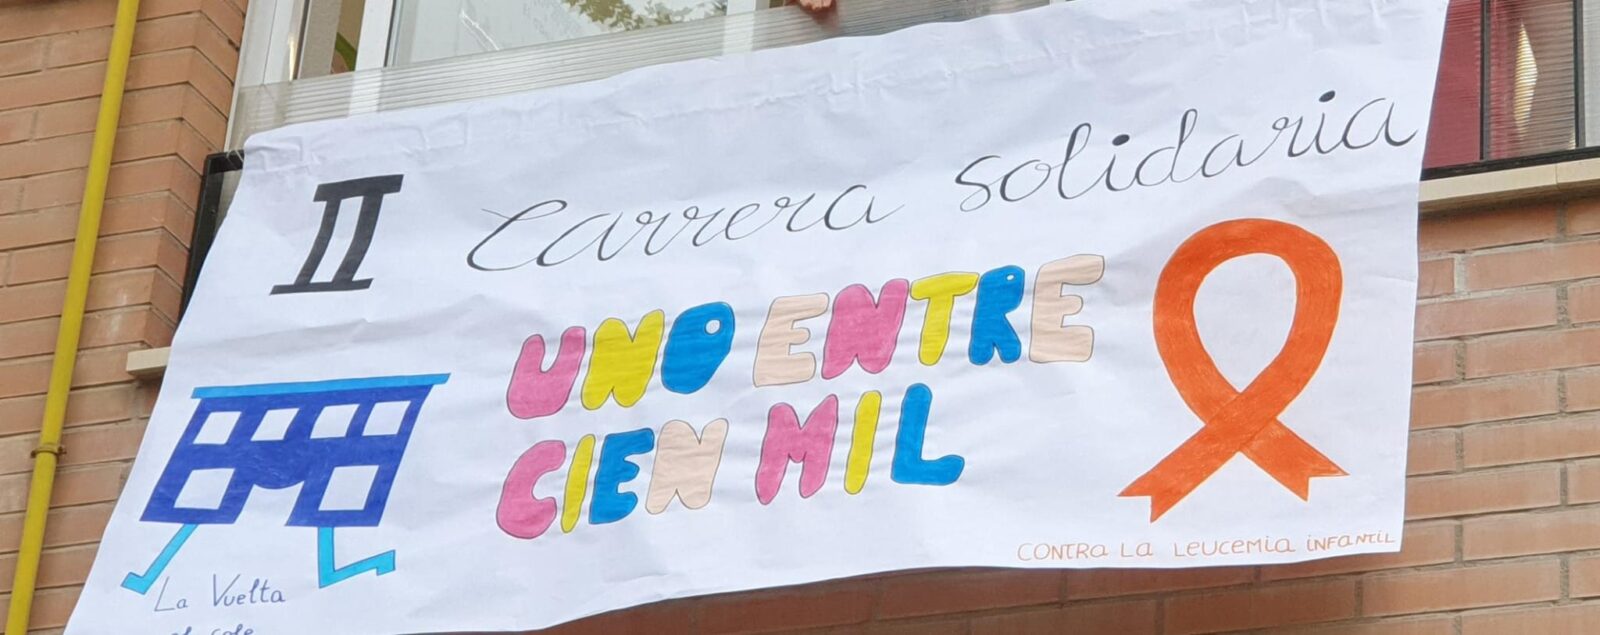 II Carrera solidaria
UNO ENTRE
CIEN MIL
CONTRA LA LEUCEMIA INFANTIL
La Vuelta
al cole